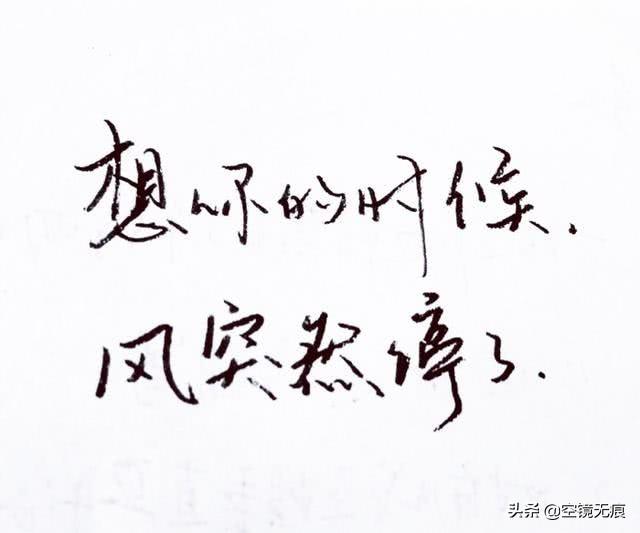 想你的时候.
风突然停了.
头条 @空镜无痕